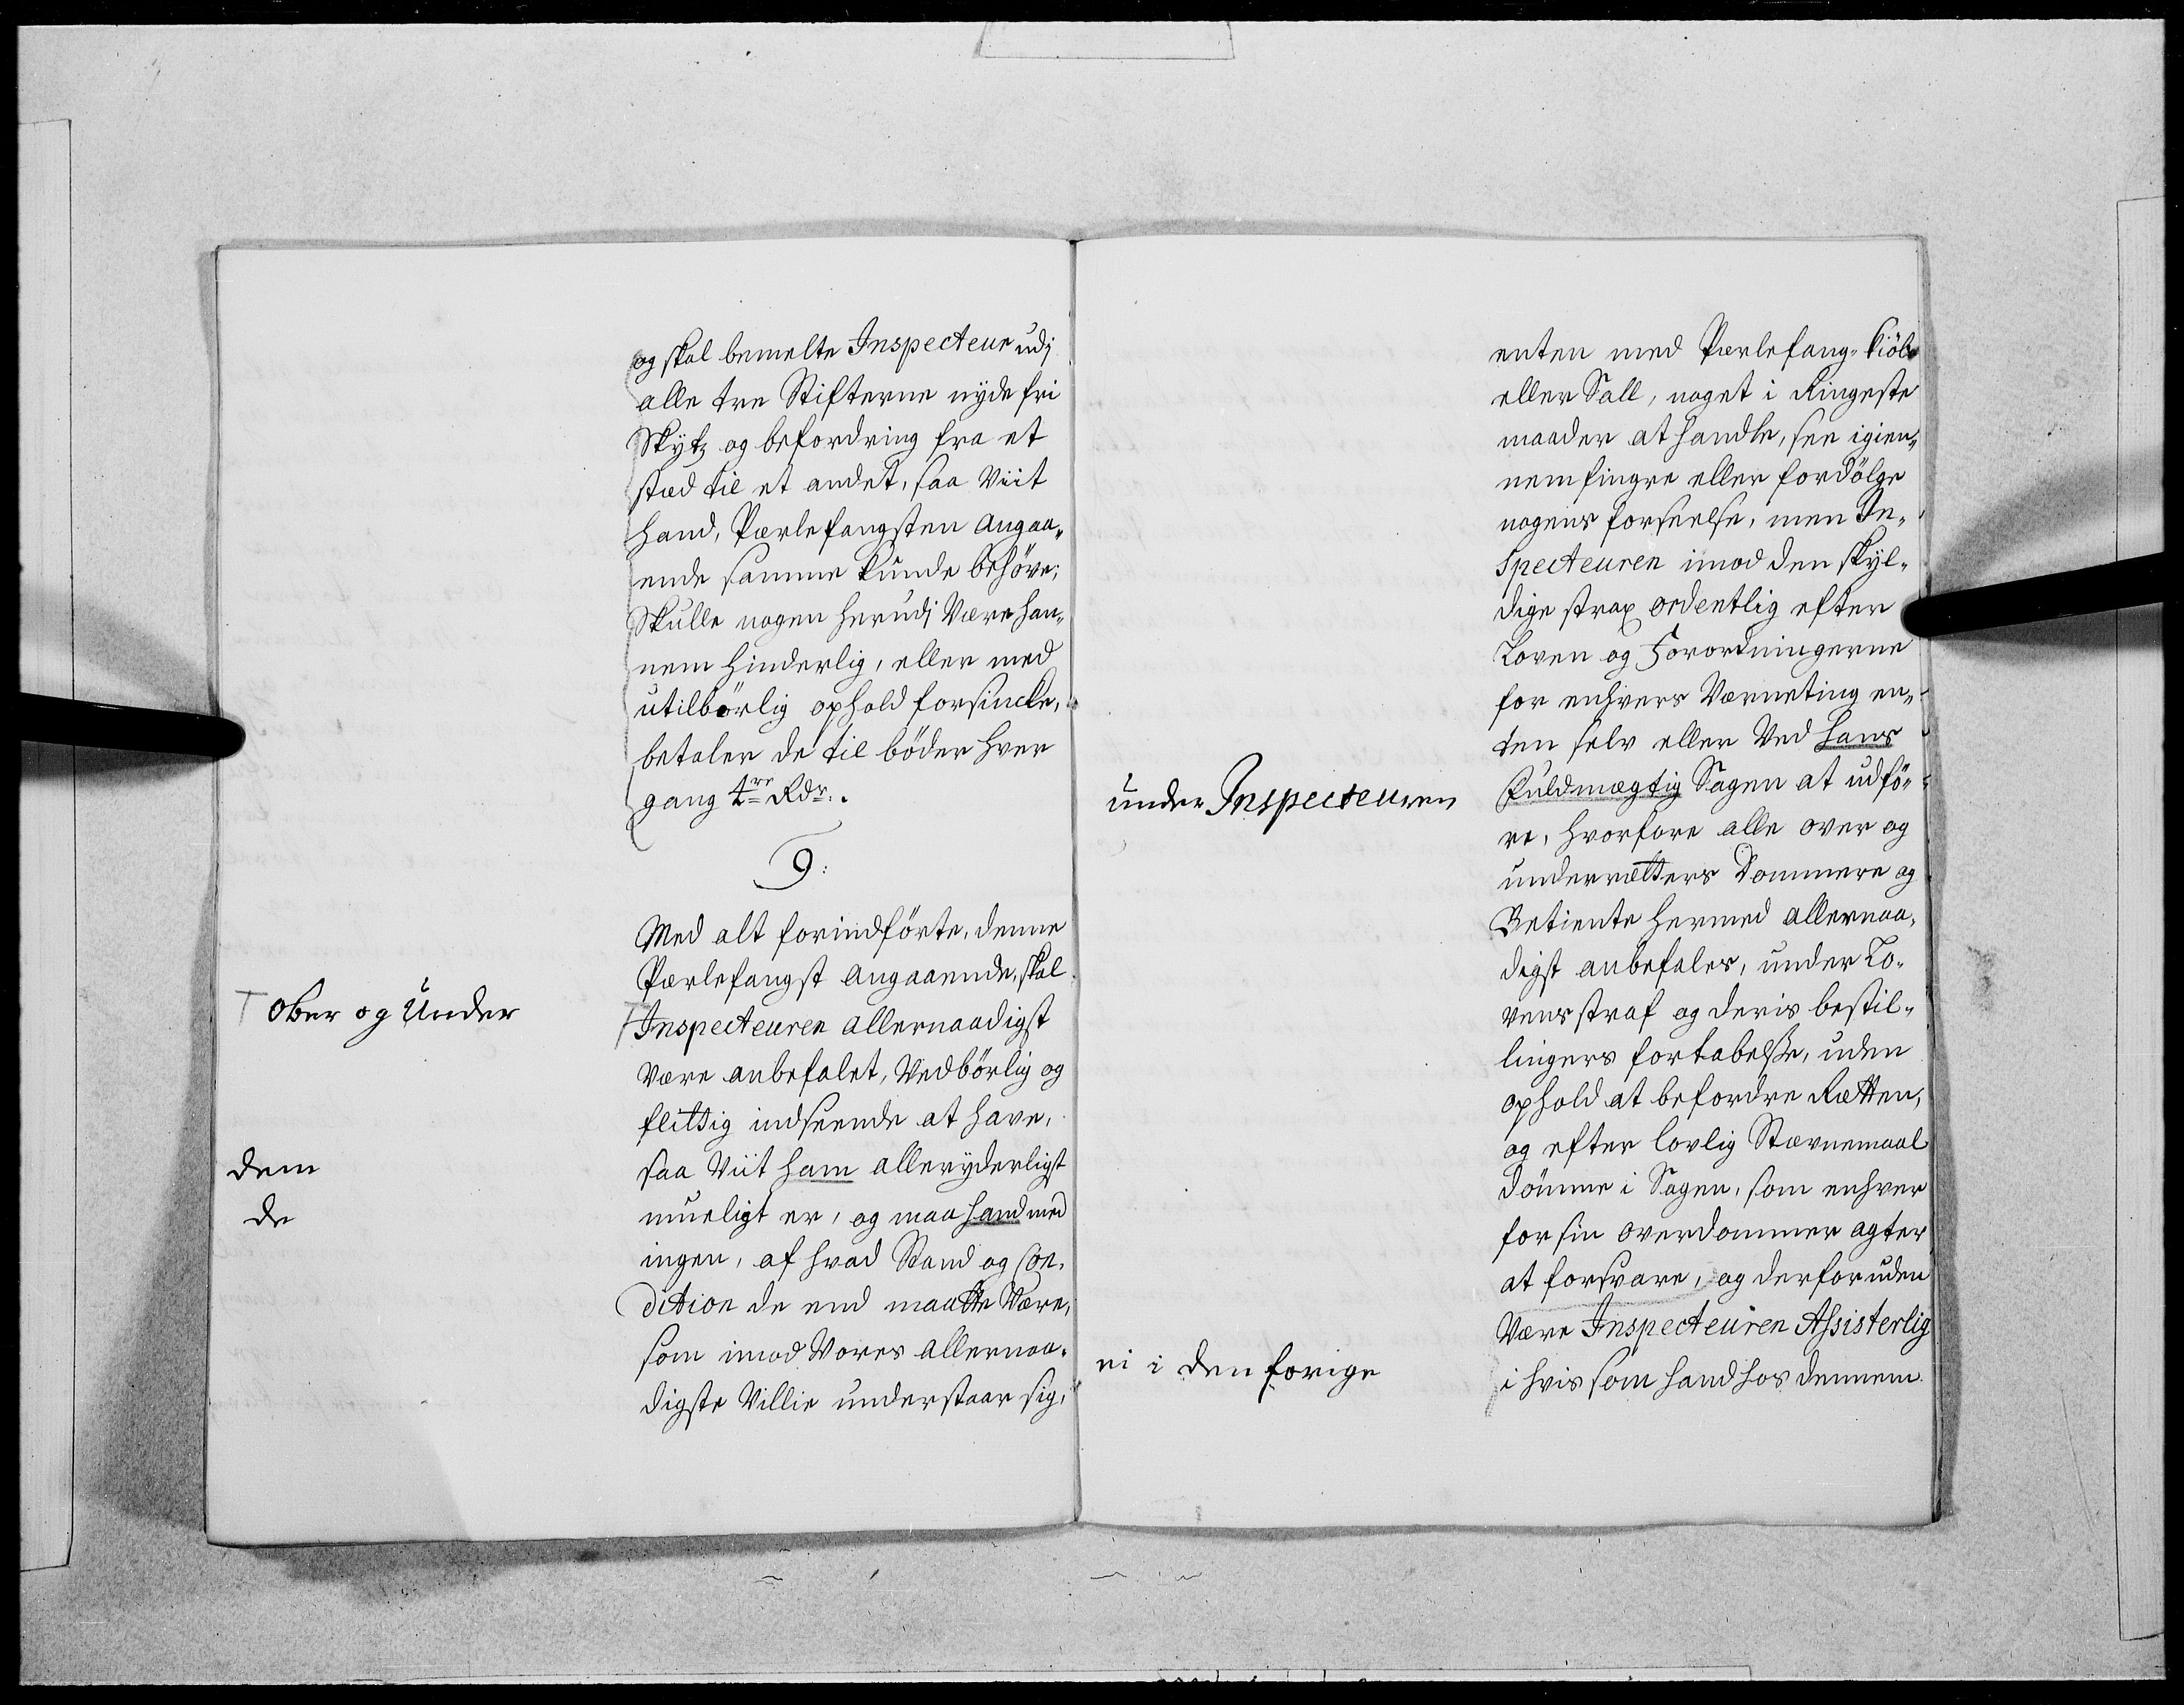 og skal bemelte Inspecteur udj
alle tre Stifterne nyde fri
Skytz og befordring fra et
stæd til et andet, saa Viit
hand, Pærlefangsten angaa„
ende samme kunde behöve;
Skulle nogen herudj Være han„
nem hinderlig, eller med
utilbörlig ophold forsincke,
betaler de til böder hver
gang 4re Rdr.
9:
Med alt forindförte, denne
Pærlefangst angaaende, skal
T Inspecteuren allernaadigst
være anbefalet, Vedbörlig og
flittig indseende at have,
saa Viit ham alleryderligst
mueligt er, og maa hand med
ingen, af hvad Stand og Con„
dition de end maatte Være,
som imod Vores allernaa„
digste Villie understaar sig,
T ober og Under
dem
de
enten med Pærlefang, kiöb
eller Sall, noget i Ringeste
maader at handle, see igien„
nem fingre eller fordölge
nogens forseelse, men In„
specteuren imod den skyl„
dige strax ordentlig efter
Loven og Forordningerne
for enhvers Værneting en„
ten selv eller Ved hans
Fuldmægtig Sagen at udfö„
re, hvorfore alle over og
underretters Dommere og
Betiente hermed allernaa„
digst anbefales, under Lo„
vens straf og deris bestil„
lingers fortabelse, uden
ophold at befordre Rætten,
og efter lovlig Stævnemaal
dömme i Sagen, som enhver
for sin overdommer agter
at forsvare, og derforuden
Være Inspecteuren Assisterlig
i hvis som hand hos dennem
under Inspecteuren
ni i den forige